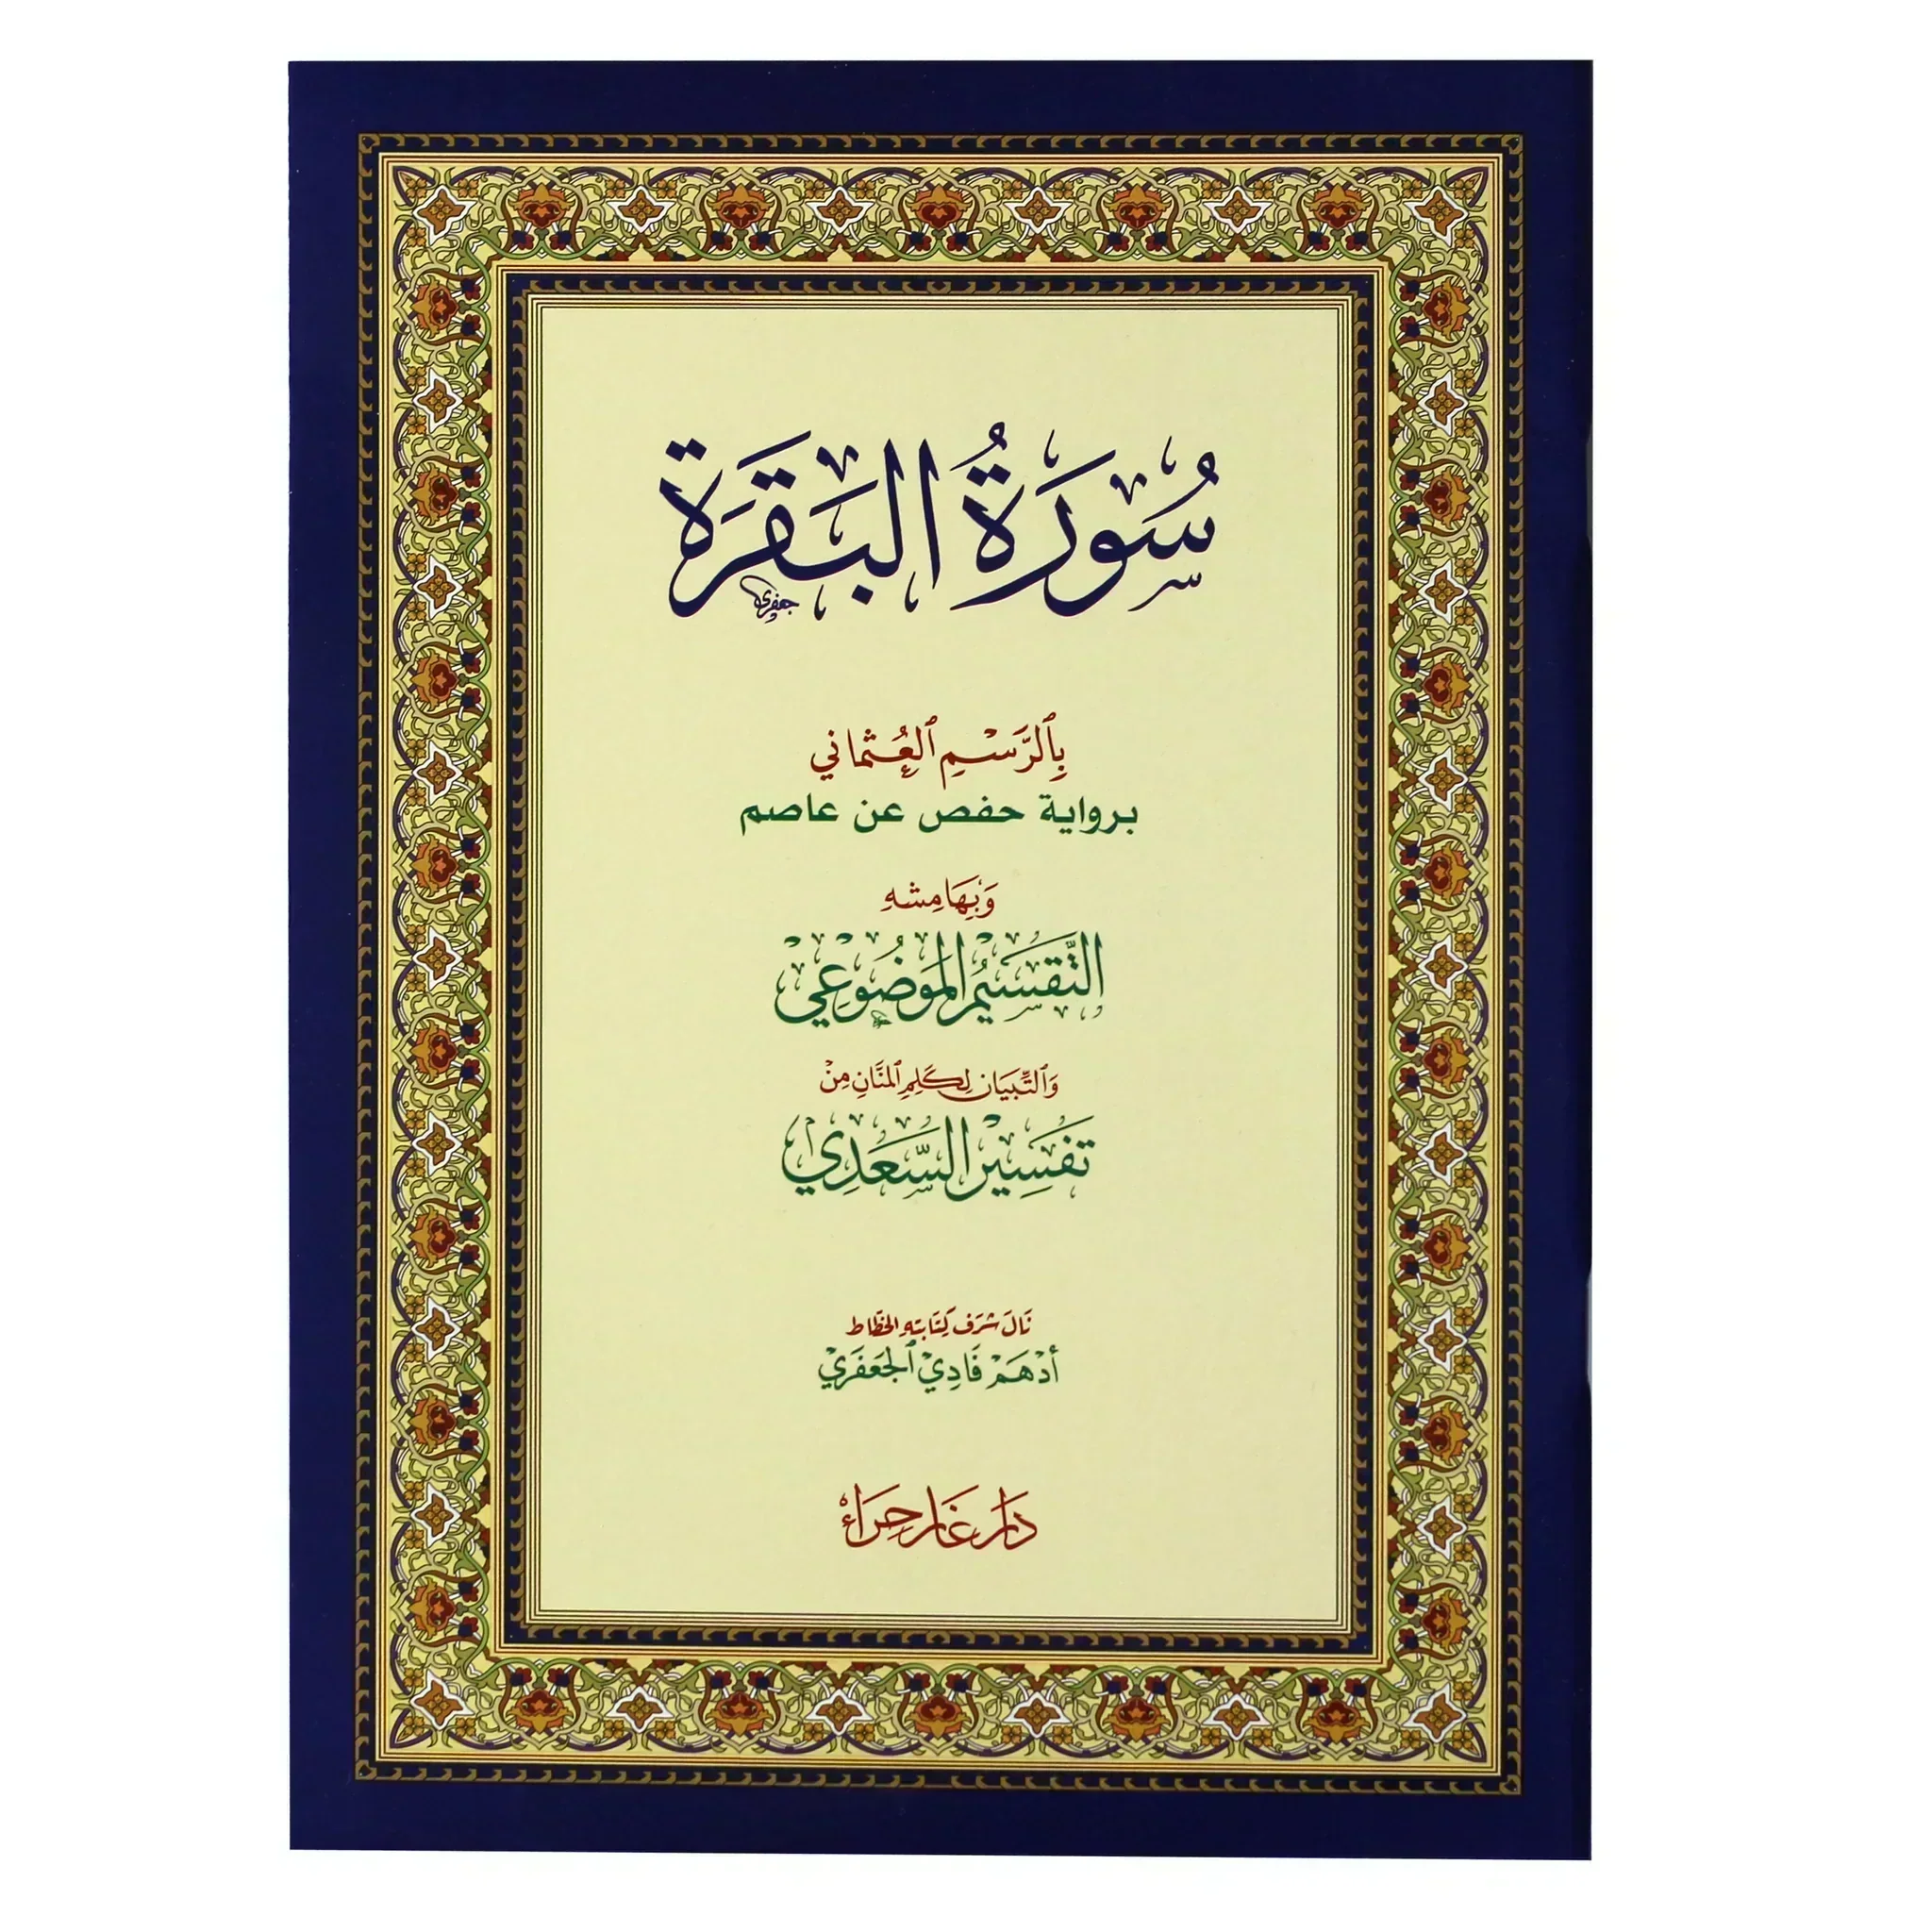 سُورَةُ البَقَرَة
جعفري
بِٱلرَّسْمِ ٱلعُثْمَانِي
برواية حفص عن عاصم
وَبِهَامِشِهِ
التَّقسِيمُ المَوضُوعِي
وَٱلتِّبيَان لِكَلِمِ ٱلمَنَّانِ مِنْ
تَفسِير السَّعدِي
نَالَ شَرَف كِتَابته الخطّاط
أدْهَمْ فَادِيْ ٱلجَعفَرِيْ
دَار غَار حِرَاء